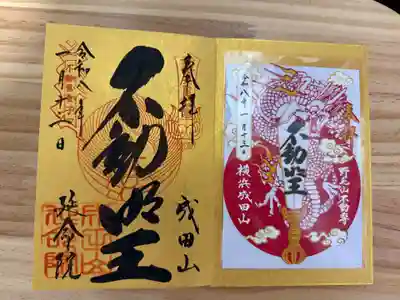 奉拝
不動明王
成田山
令和八年
一月十三日
延命院
奉拝
令和八年一月十三日
不動明王
野毛山不動尊
横浜成田山